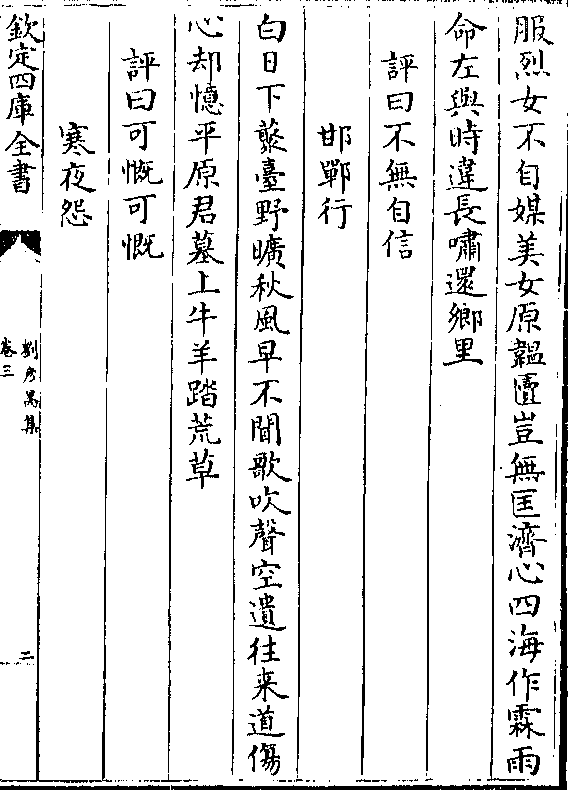 服烈女不自媒美女原韞匵豈無匡濟心四海作霖雨
命左與時違長嘯還鄉里
評曰不無自信
邯鄲行
白日下叢臺野曠秋風早不聞歌吹聲空遺往来道傷
心却憶平原君墓上牛羊踏荒草
評曰可慨可慨
寒夜怨
欽定四庫全書
劉彥昺集
卷三
二